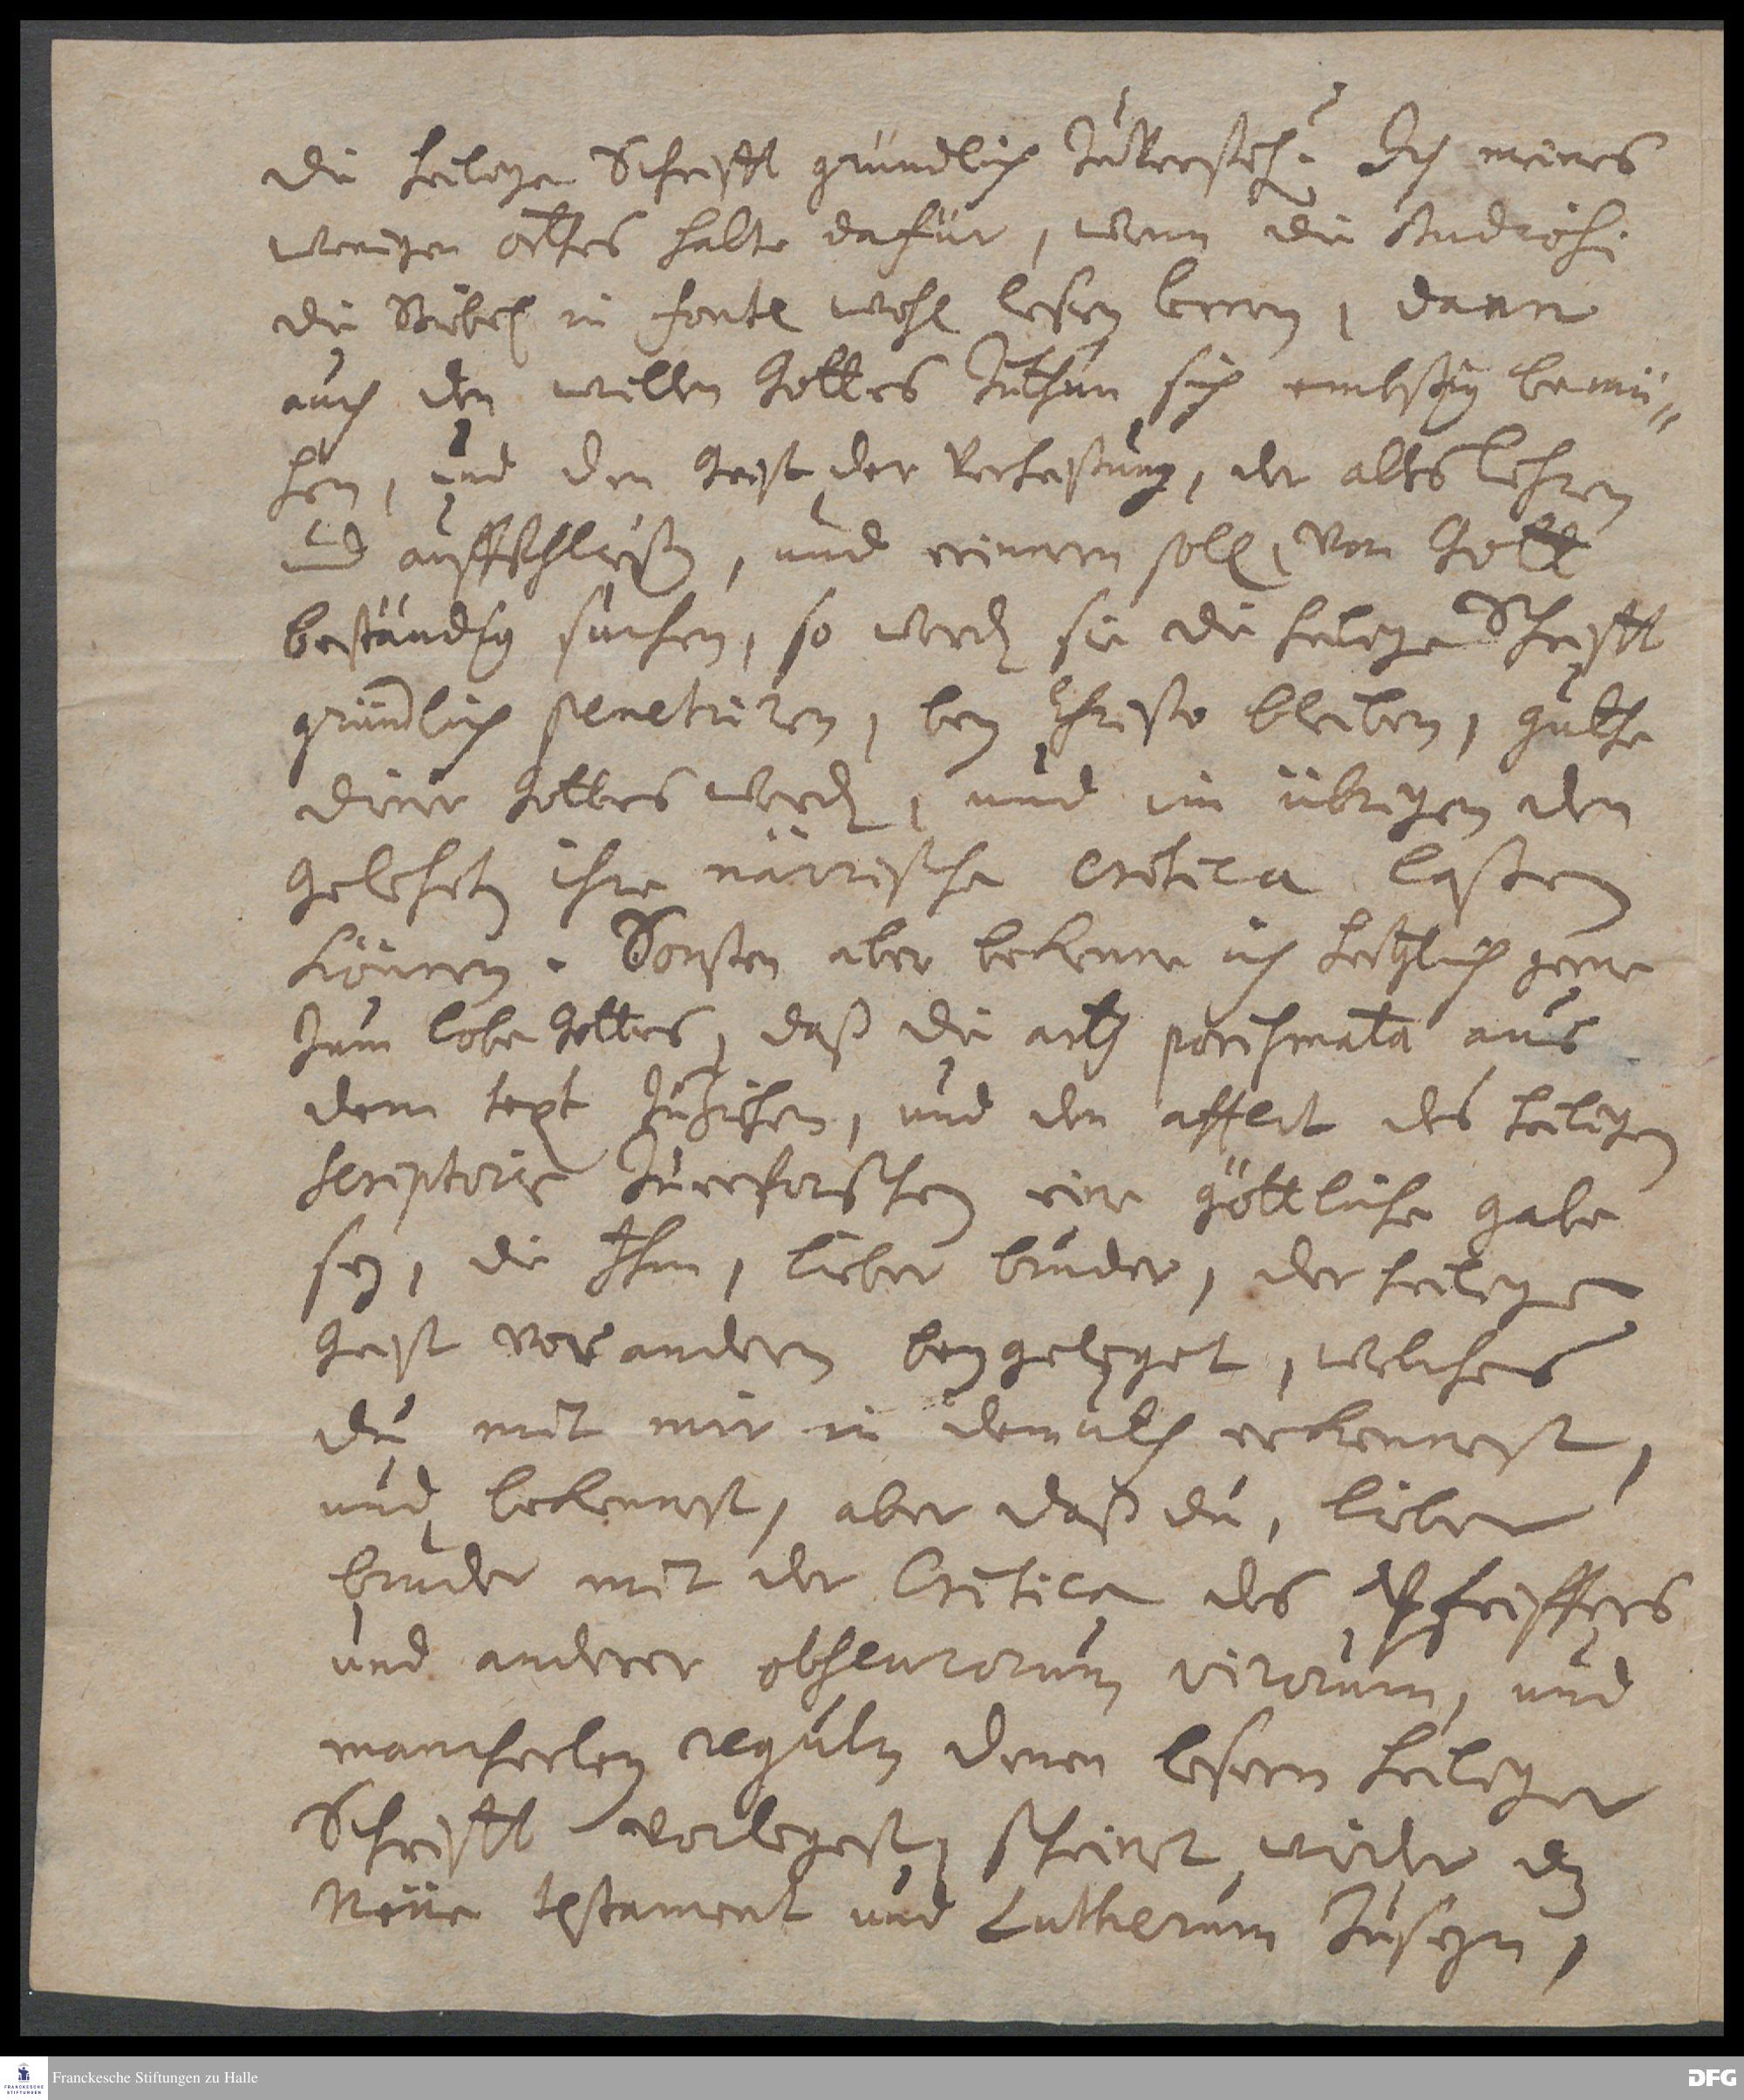 die heilige Schrifft gründlich zuversteh? Ich meines
wenigen ortes halte dafür, wenn die Studiosi
die Bibel in fonte wohl lesen lernen, dann
auch den willen Gottes zuthun sich embsig bemü-
hen, und den Geist der Verheißung, der alles lehren
und auffschließen, und erinnern soll, von Gott
beständig suchen, so werden sie die heilige Schrifft
gründlich penetriren, bey Christo bleiben, guthe
diener Gottes werden, und im übrigen den
Gelehrten ihre närrische critica laßen
können. Sonsten aber bekenne ich hertzlich gerne
zum lobe Gottes, daß die arth porismata aus
dem text zuziehen, und den affect des heiligen
scriptoris zuerforschen eine göttliche gabe
sey, die Ihm, lieber bruder, der heilige
Geist vor andern beygeleget, welches
du mit mir in demuth erkennest,
und bekennest, aber daß du, lieber
bruder mit der Critica des Pfeiffers
und anderer obscurorum virorum, und
mancherley reguln denen lesern heiliger
Schrifft vorlegest, scheinet wieder dz
Neüe testament und Lutherum zuseyn,
Franckesche Stiftungen zu Halle
FRANCKESCHE STIFTUNGEN
DFG